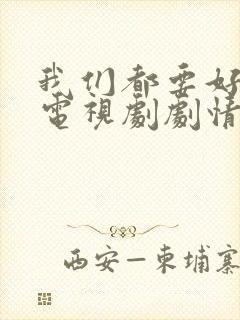 我们都要好
電視劇劇情
西安–柬埔寨